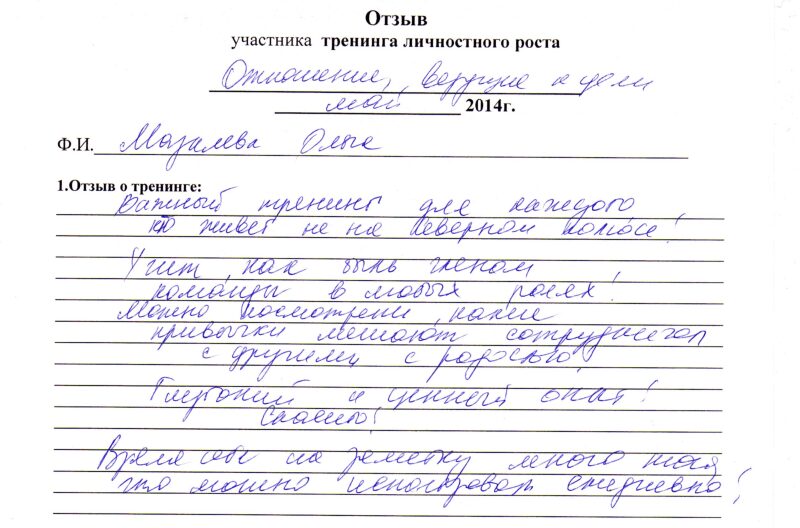 Отзыв
участника тренинга личностного роста
Отношения, ведущие к цели
май 2014г.
Ф.И. Мазалева Ольга
1.Отзыв о тренинге:
Важный тренинг для каждого,
кто живет не на северном полюсе!
Учит, как быть членом
команды в любых ролях!
Можно посмотреть, какие
привычки мешают сотрудничать
с другими с радостью!
Глубокий и ценный опыт!
Спасибо!
Время себе на заметку много
что можно использовать ежедневно!